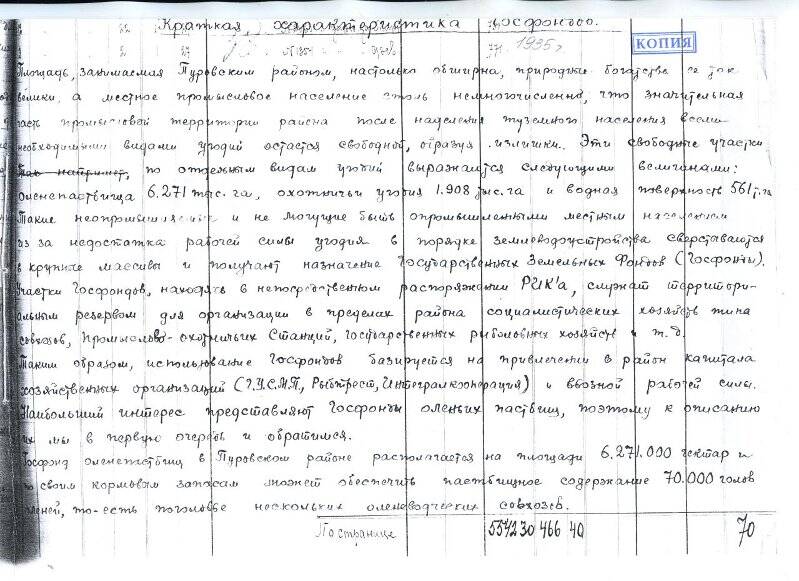 Краткая, характеристика Госфондов.
1935г
КОПИЯ
Площадь, занимаемая Пуровским районом, настолько обширна, природные богатства ее так
велики, а местное промысловое население столь немногочисленно, что значительная
часть промысловой территории района после наделения туземного населения всеми
необходимыми видами угодий остается свободной, образуя излишки. Эти свободные участки
Так например, по отдельным видам угодий выражаются следующими величинами:
оленепастбища 6.271 тыс. га, охотничьи угодия 1.908 тыс. га и водная поверхность 561 т. га
Такие неопромышляемые и не могущие быть опромышленными местным населением
из за недостатка рабочей силы угодия в порядке земледоустройства сверстываются
в крупные массивы и получают назначение Государственных Земельных Фондов (Госфонды).
Участки Госфондов, находясь в непосредственном распоряжении РИК'а, служат территори-
альным резервом для организации в пределах района социалистических хозяйств типа
совхозов, Промыслово-охотничьих Станций, государственных рыболовных хозяйств и т.д.
Таким образом, использование Госфондов базируется на привлечении в район капитала
хозяйственных организаций (Г.У.С.М.П., Рыбтрест, Интегралкооперация) и ввозной рабочей силы.
Наибольший интерес представляют Госфонды оленьих пастбищ, поэтому к описанию
их мы в первую очередь и обратимся.
Госфонд оленепастбищ в Пуровском районе располагается на площади 6.271.000 гектар и
по своим кормовым запасам может обеспечить пастбищное содержание 70.000 голов
оленей, то-есть поголовье нескольких оленеводческих совхозов.
По странице 554230 466 40 70